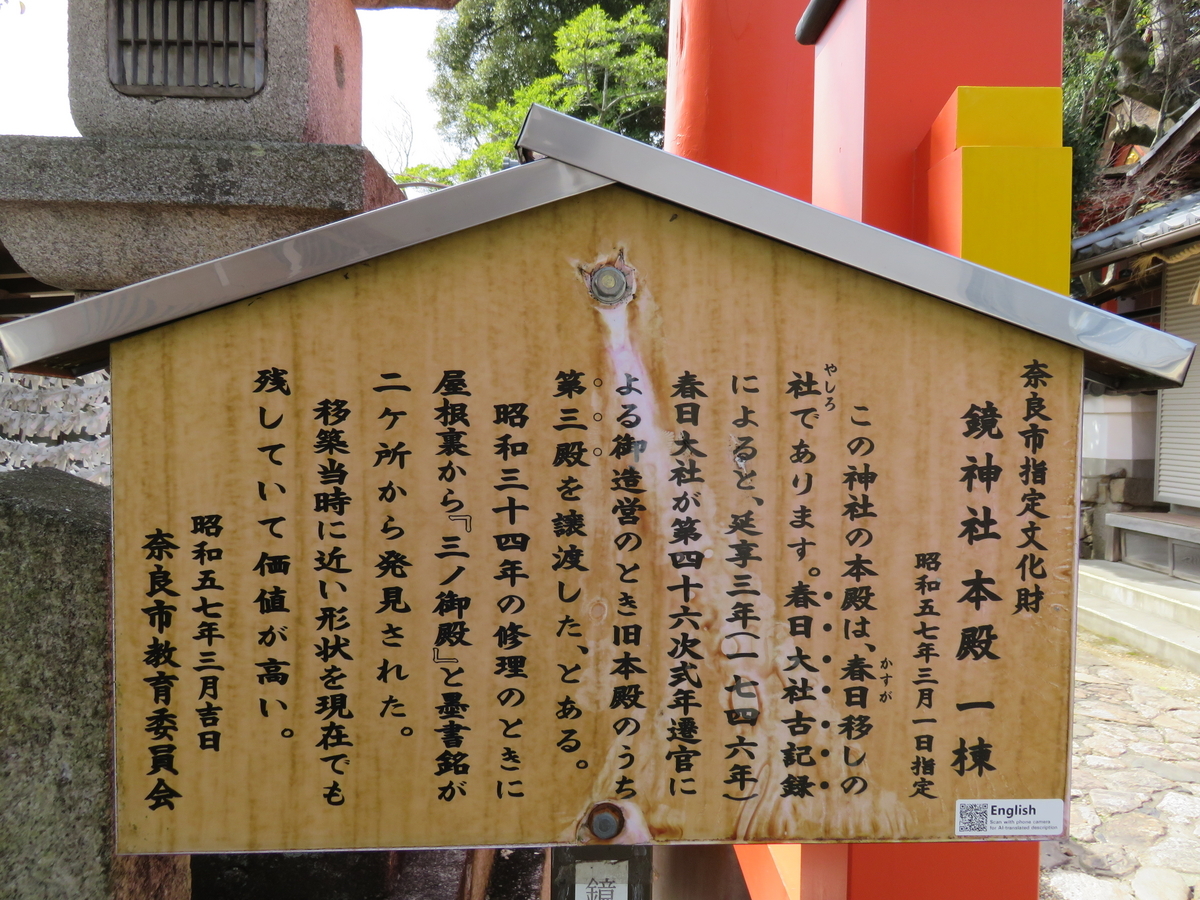 奈良市指定文化財
鏡神社 本殿 一棟
昭和五七年三月一日指定
この神社の本殿は、春日移しの
かすが
社であります。春日大社古記録
やしろ
によると、延享三年(一七四六年)
春日大社が第四十六次式年遷官に
よる御造営のとき旧本殿のうち
第三殿を譲渡した、とある。
昭和三十四年の修理のときに
屋根裏から『三ノ御殿』と墨書銘が
二ヶ所から発見された。
移築当時に近い形状を現在でも
残していて価値が高い。
昭和五七年三月吉日
奈良市教育委員会
English
Scan with phone camera
for AI translated description
鏡